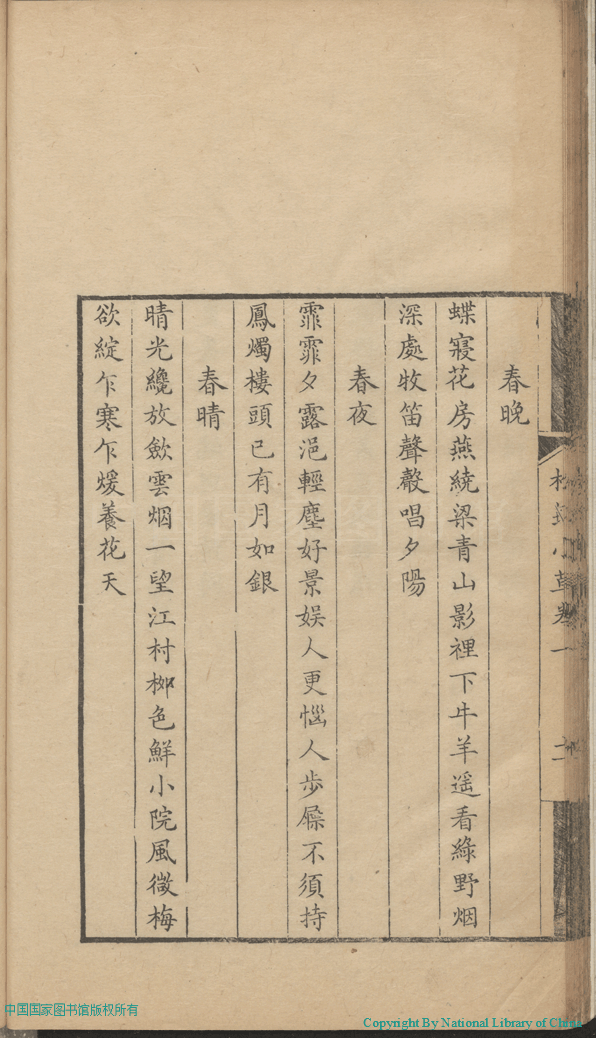 春晚
蝶寢花房燕繞梁青山影裡下牛羊遥看綠野烟
深處牧笛聲聲唱夕陽
春夜
霏霏夕露浥輕塵好景娱人更惱人步屧不須持
鳳燭樓頭已有月如銀
春晴
晴光纔放歛雲烟一望江村桞色鮮小院風微梅
欲綻乍寒乍煖養花天
小草卷一
中国国家图书馆版权所有
Copyright By National Library of China